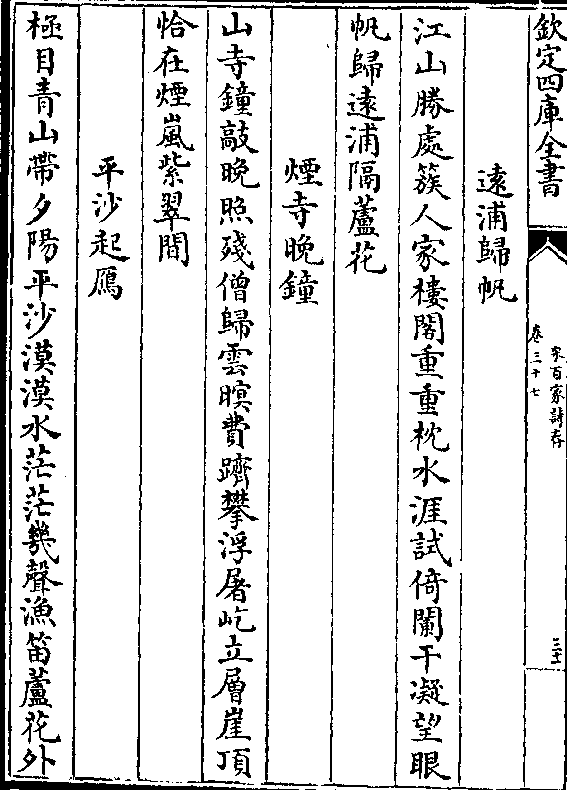 欽定四庫全書
宋百家詩存
卷三十七
三十一
遠浦歸帆
江山勝處簇人家樓閣重重枕水涯試倚闌干凝望眼
帆歸遠浦隔蘆花
煙寺晚鐘
山寺鐘敲晚照殘僧歸雲暝費躋攀浮屠屹立層崖頂
恰在煙嵐紫翠間
平沙起鴈
極目青山帶夕陽平沙漠漠水茫茫幾聲漁笛蘆花外